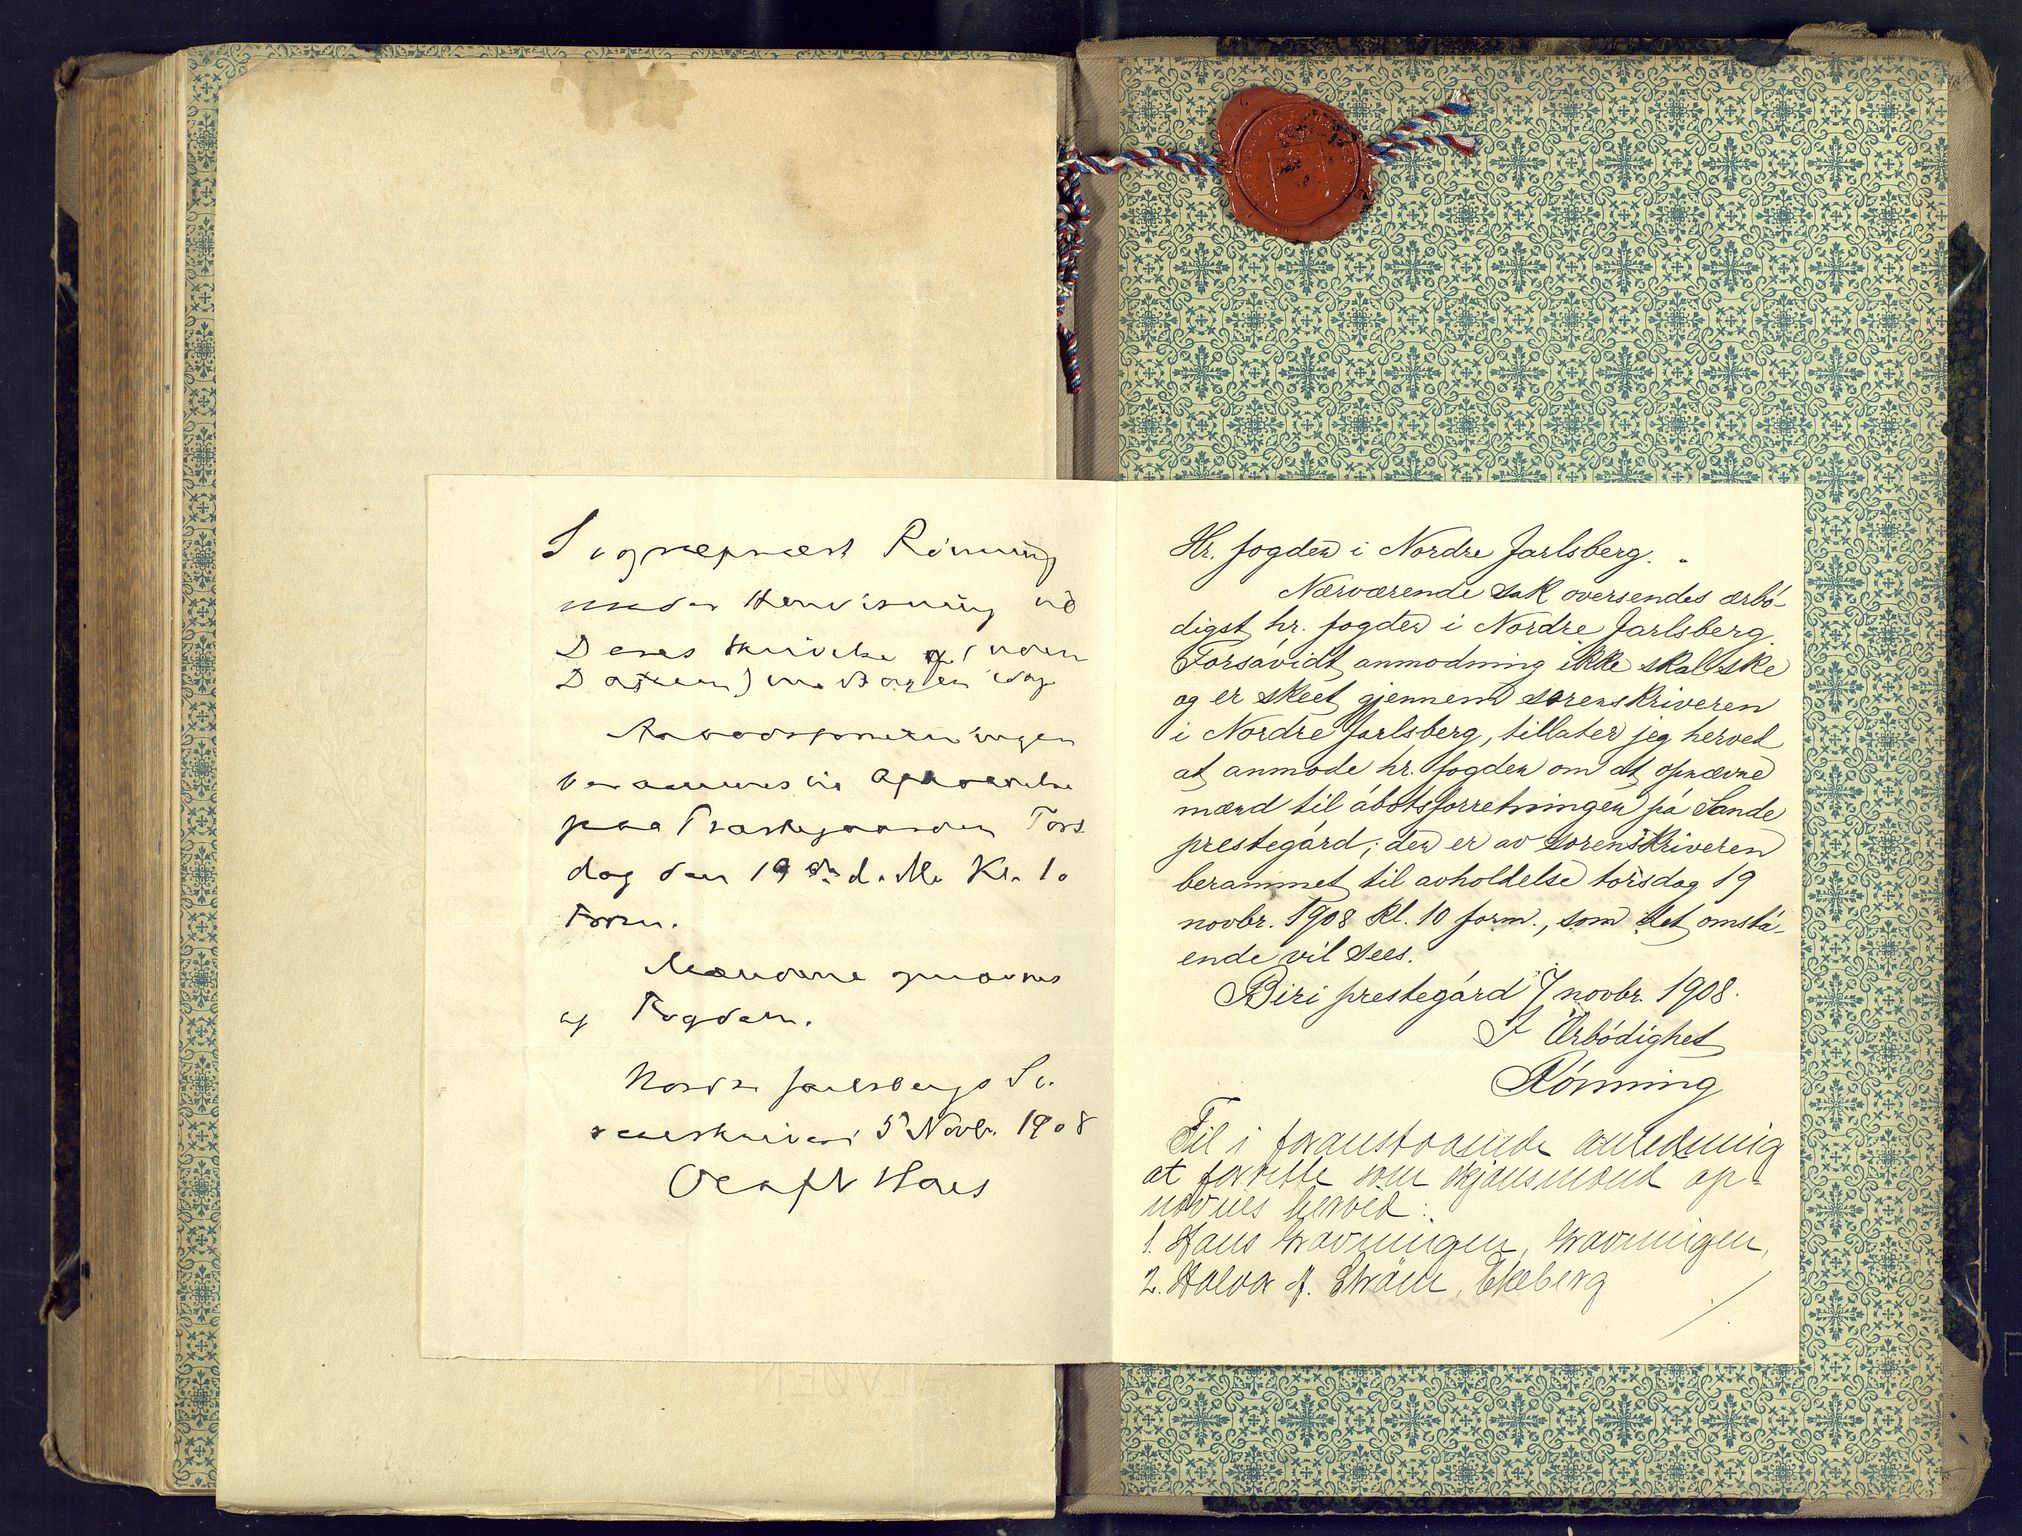 Sogneprest Rönning
under Henvisning til
Deres Skrivelse af (uden
Datum) modtagen idag
Aabodsforretningen
berammes til Afholdelse
paa Præstegaarden Tors
dag den 19de d. M. Kl. 10
Form.
Mændene opnævnes
af Fogden.
Nordre Jarlsbergs So-
renskriveri 5 Novbr. 1908
Hr. fogden i Nordre Jarlsberg.
Nærværende sak oversendes ærbö-
digst hr. fogden i Nordre Jarlsberg.
Forsåvidt anmodning ikke skal ske
og er skeet gjennem sorenskriveren
i Nordre Jarlsberg, tillater jeg herved
at anmode hr. fogden om at opnævne
mænd til åbotsforretningen på Sande
prestegård; den er av sorenskriveren
berammet til avholdelse torsdag 19
novbr. 1908 kl. 10 form., som det omstå-
ende vil sees.
Biri prestegård 7 novbr. 1908.
I Ærbödighet
Rönning
Til i foranstaaende anledning
at forrette som skjönsmænd op-
nævnes herved:
1. Hans Gravningen, Gravningen,
2. Halvor J. Ström, Ekeberg